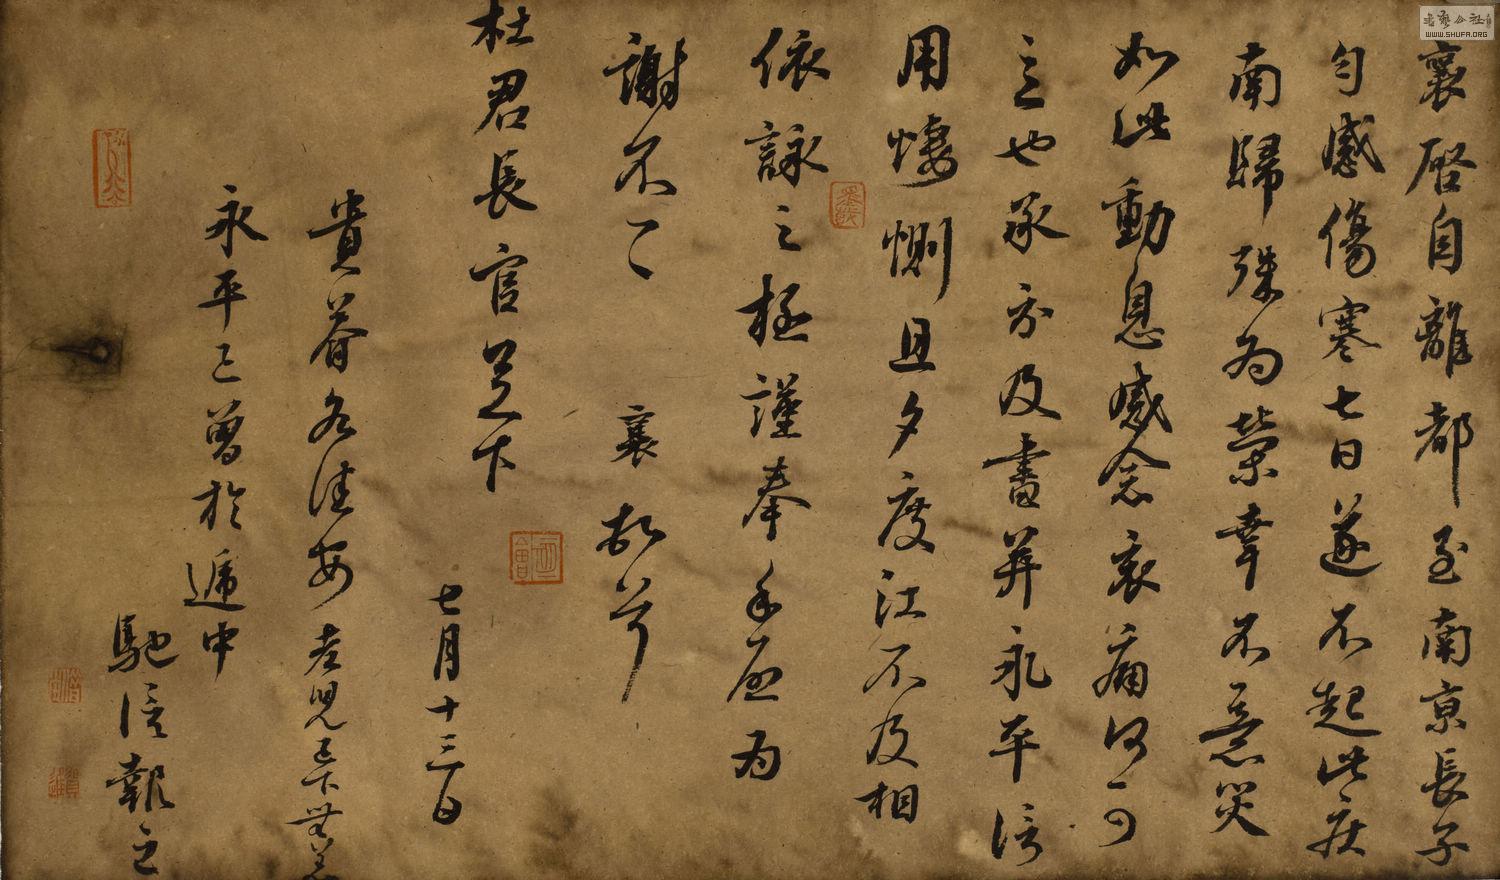 襄啓自離都至南京長子
勻感傷寒七日遂不起此疾
南歸殊為榮幸不意災
如此動息感念哀痛何可
言也承示及書并永平信
用悽惻旦夕度江不及相
依詠之極謹奉手啓為
謝不一一 襄 頓首
杜君長官足下
七月十三日
貴眷各佳安老兒已下無恙
永平已曾於遞中
馳信報之
書藝公社
WWW.SHUFA.ORG